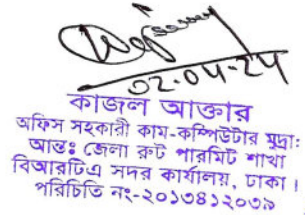 ০২-০৭-২৭
কাজল আক্তার
অফিস সহকারী কাম-কম্পিউটার মুদ্রা:
আন্ত: জেলা রুট পারমিট শাখা
বিআরটিএ সদর কার্যালয়, ঢাকা।
পরিচিতি নং-২০১৩৪১২০৩৯